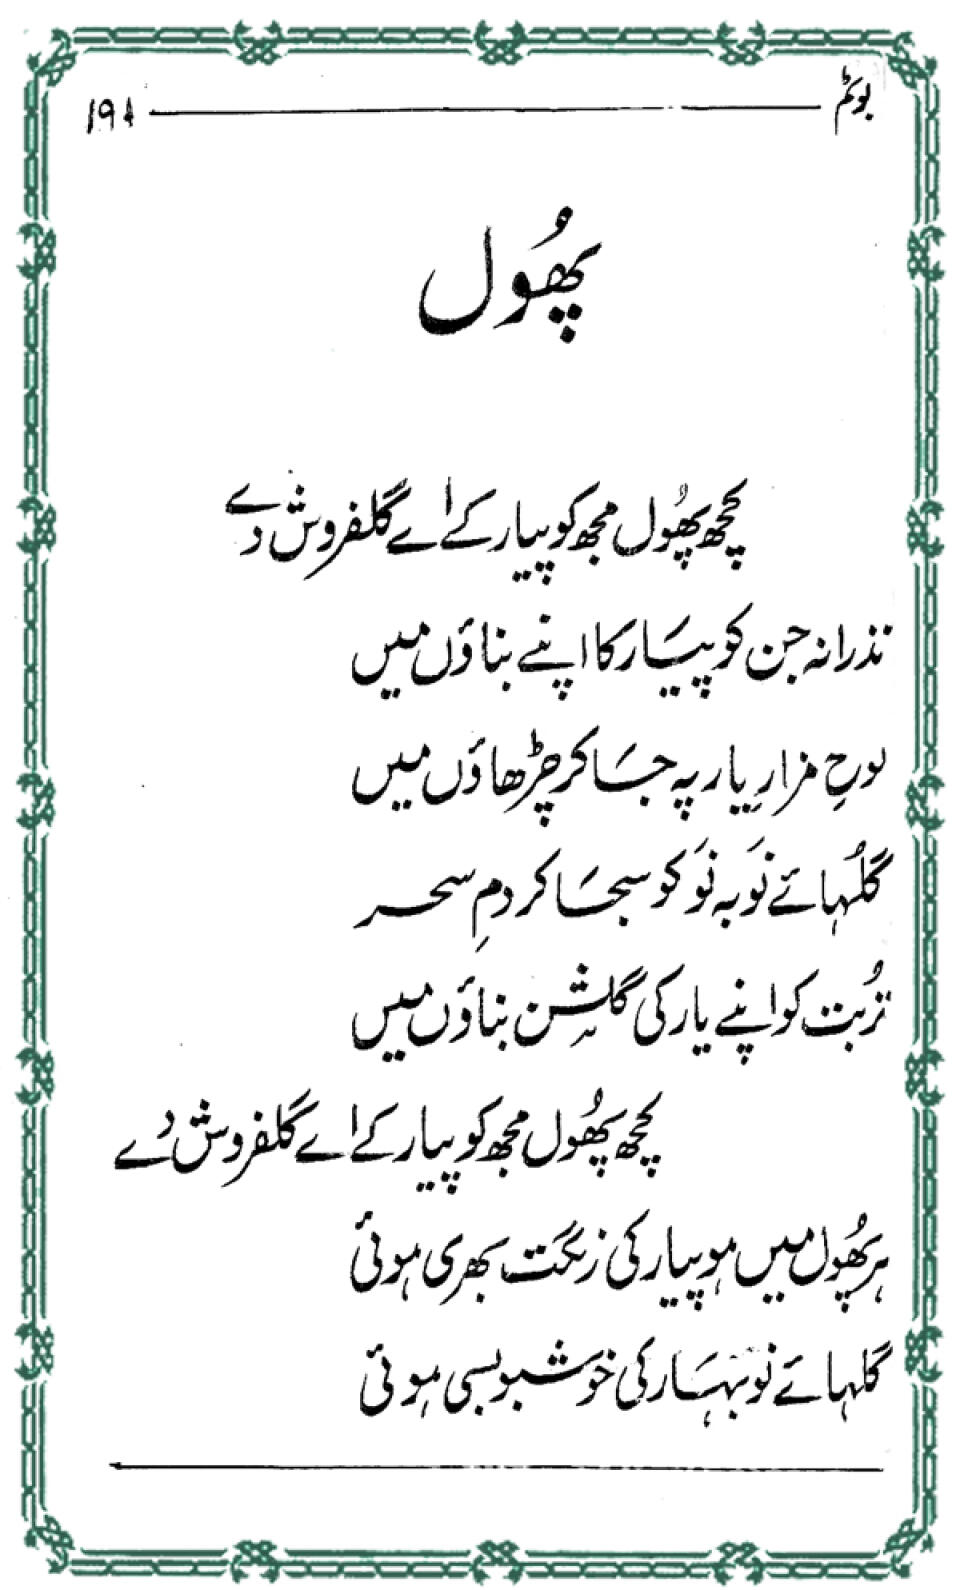 بوئم ۱۹۸
پھُول
کچھ پھُول مجھ کو پیار کے اے گلفروش دے
نذرانہ جن کو پیَار کا اپنے بناؤں میں
لوحِ مزارِ یار پہ جَا کر چڑھاؤں میں
گلُہائے نَو بہ نَو کو سجَا کر دمِ سحر
تُربت کو اپنے یار کی گلشن بناؤں میں
کچھ پھُول مجھ کو پیار کے اے گلفروش دے
ہر پھُول میں ہو پیار کی رنگت بھری ہوئی
گلہائے نو بہَار کی خوشبو بسی ہوئی